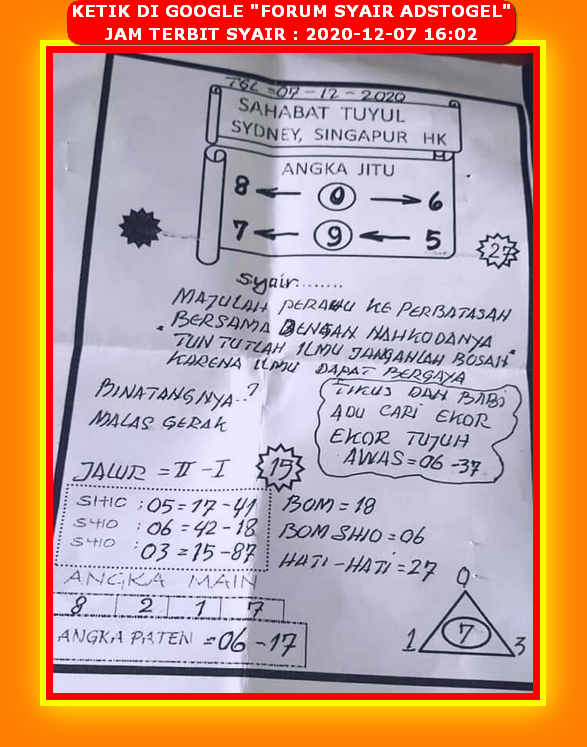 KETIK DI GOOGLE "FORUM SYAIR ADSTOGEL"
JAM TERBIT SYAIR : 2020-12-07 16:02
TGL = 07-12-2020
SAHABAT TUYUL
SYDNEY, SINGAPUR HK
ANGKA JITU
8 ← 0 → 6
7 ← 9 ← 5
27
Syair........
MAJULAH PERAHU KE PERBATASAN
BERSAMA DENGAN NAHKODANYA
TUNTUTLAH ILMU JANGANLAH BOSAN"
KARENA ILMU DAPAT BERGAYA
BINATANGNYA..?
MALAS GERAK
TIKUS DAN BABI
ADU CARI EKOR
EKOR TUJUH
AWAS = 06 -37
JALUR = II - I
15
SHIO : 05 = 17 - 41
SHIO : 06 = 42 - 18
SHIO : 03 = 15 - 87
BOM = 18
BOM SHIO = 06
HATI - HATI = 27
ANGKA MAIN
8 2 1 7
ANGKA PATEN = 06 - 17
0
7
1 3